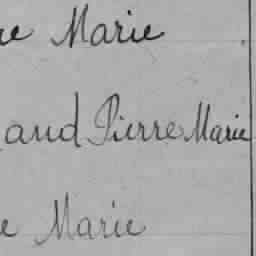 ne Marie
aud Pierre Marie
e Marie